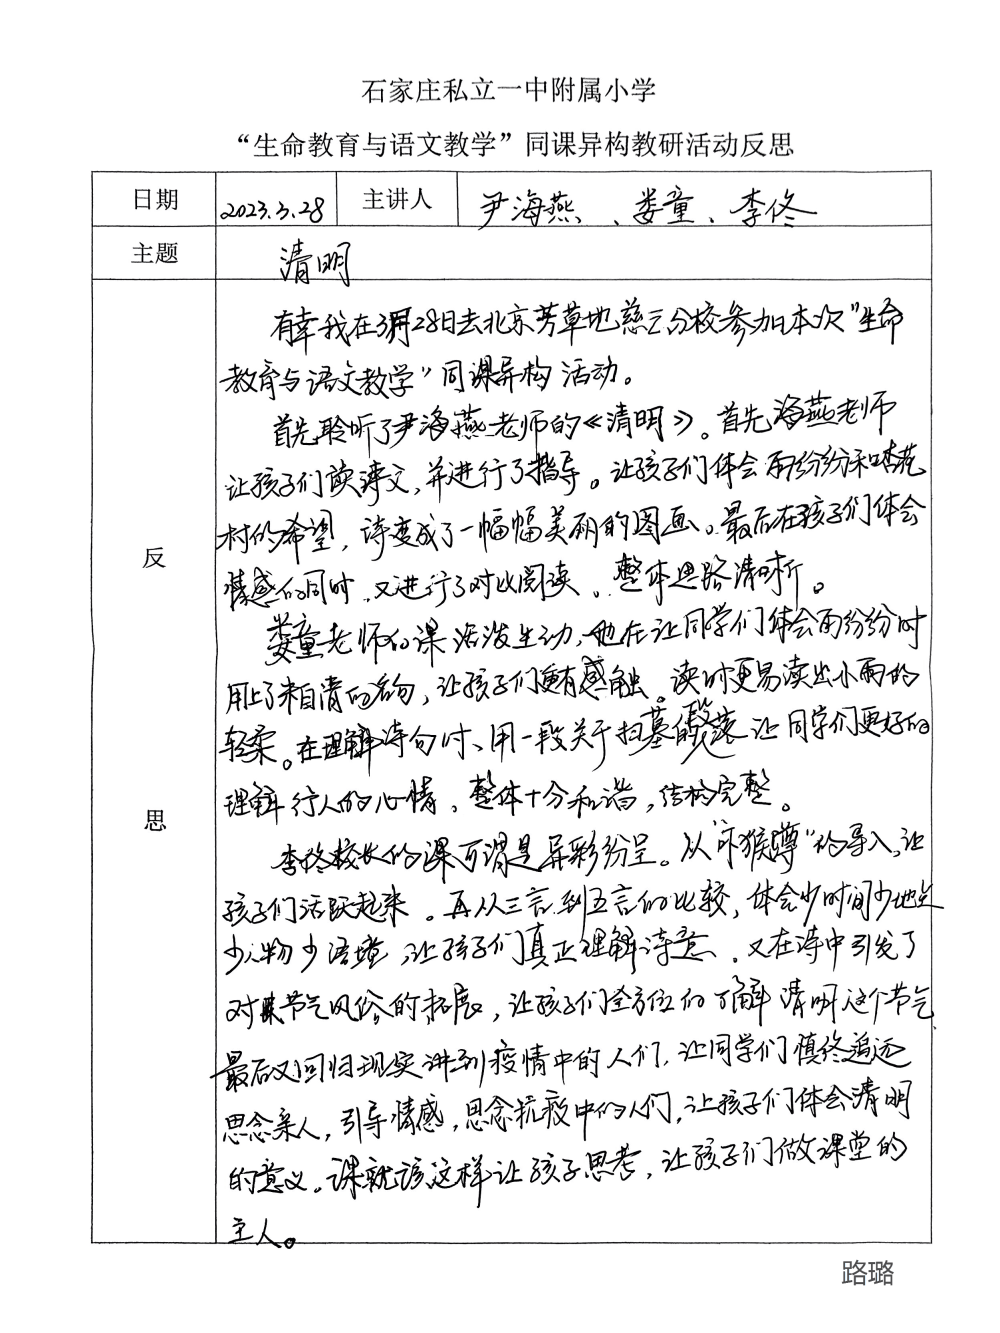 石家庄私立一中附属小学
“生命教育与语文教学”同课异构教研活动反思
日期 2023.3.28 主讲人 尹海燕、娄童、李佟
主题 清明
反思
有幸我在3月28日去北京芳草地慈云分校参加本次“生命
教育与语文教学”同课异构活动。
首先聆听了尹海燕老师的《清明》。首先海燕老师
让孩子们读课文,并进行了指导。让孩子们体会雨纷纷和杏花
村的希望,诗变成了一幅幅美丽的图画。最后在孩子们体会
情感的同时,又进行了对比阅读。整体思路清晰。
娄童老师的课活泼生动,他在让同学们体会雨纷纷时
用上了朱自清的名句,让孩子们更有感触。读时更易读出小雨的
轻柔。在理解诗句时、用一段关于扫墓的段落让同学们更好的
理解行人的心情,整体十分和谐,结构完整。
李佟校长的课可谓是异彩纷呈。从“猕猴蹲”的导入,让
孩子们活跃起来。再从三言到五言的比较,体会少时间少地点
少人物少语境,让孩子们真正理解诗意。又在诗中引发了
对节气风俗的拓展,让孩子们全方位的了解清明这个节气
最后又回归现实讲到疫情中的人们,让同学们慎终追远
思念亲人,引导情感,思念抗疫中的人们,让孩子们体会清明
的意义。课就该这样让孩子思考,让孩子们做课堂的
主人。
路璐